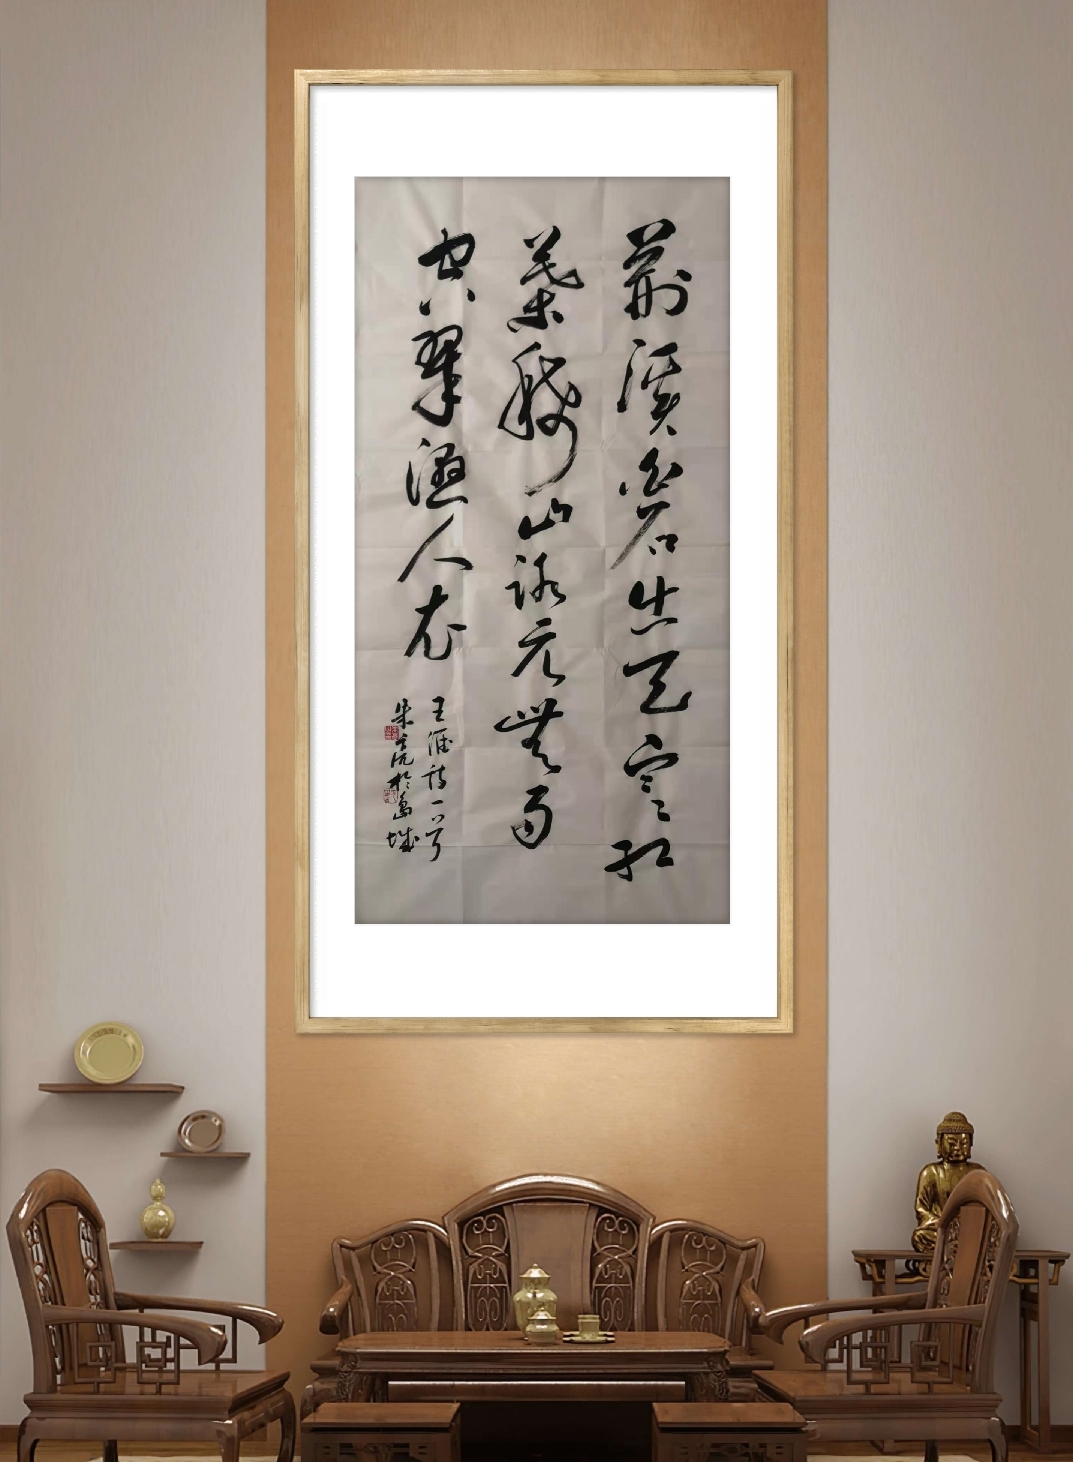 荆溪白石出天寒红
葉稀山路元無雨
空翠濕人衣
王維诗一首
朱於島城